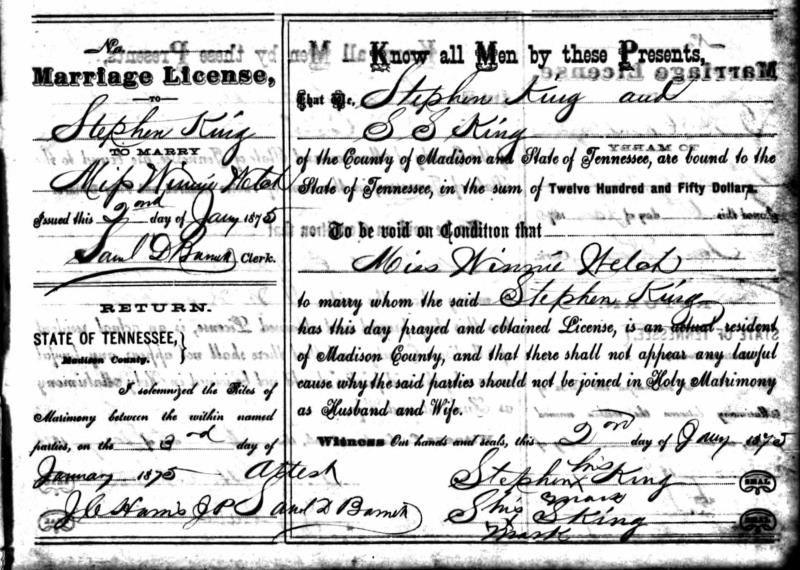 No.
Marriage License,
TO
Stephen King
TO MARRY
Miss Winnie Welch
Issued this 2nd day of Jany 1875
Saml D Barnett Clerk.
RETURN.
STATE OF TENNESSEE,
Madison County.
I solemnized the Rites of
Marimony between the within named
parties, on the 3rd day of
January 1875 Attest
J C Harris J P Saml D Barnett
Know all Men by these Presents,
That We, Stephen King and
S S King
of the County of Madison and State of Tennessee, are bound to the
State of Tennessee, in the sum of Twelve Hundred and Fifty Dollars.
To be void on Condition that
Miss Winnie Welch
to marry whom the said Stephen King
has this day prayed and obtained License, is an actual resident
of Madison County, and that there shall not appear any lawful
cause why the said parties should not be joined in Holy Matrimony
as Husband and Wife.
Witness Our hands and seals, this 2nd day of Jany 1875
Stephen his x mark King SEAL
S his x mark S King SEAL